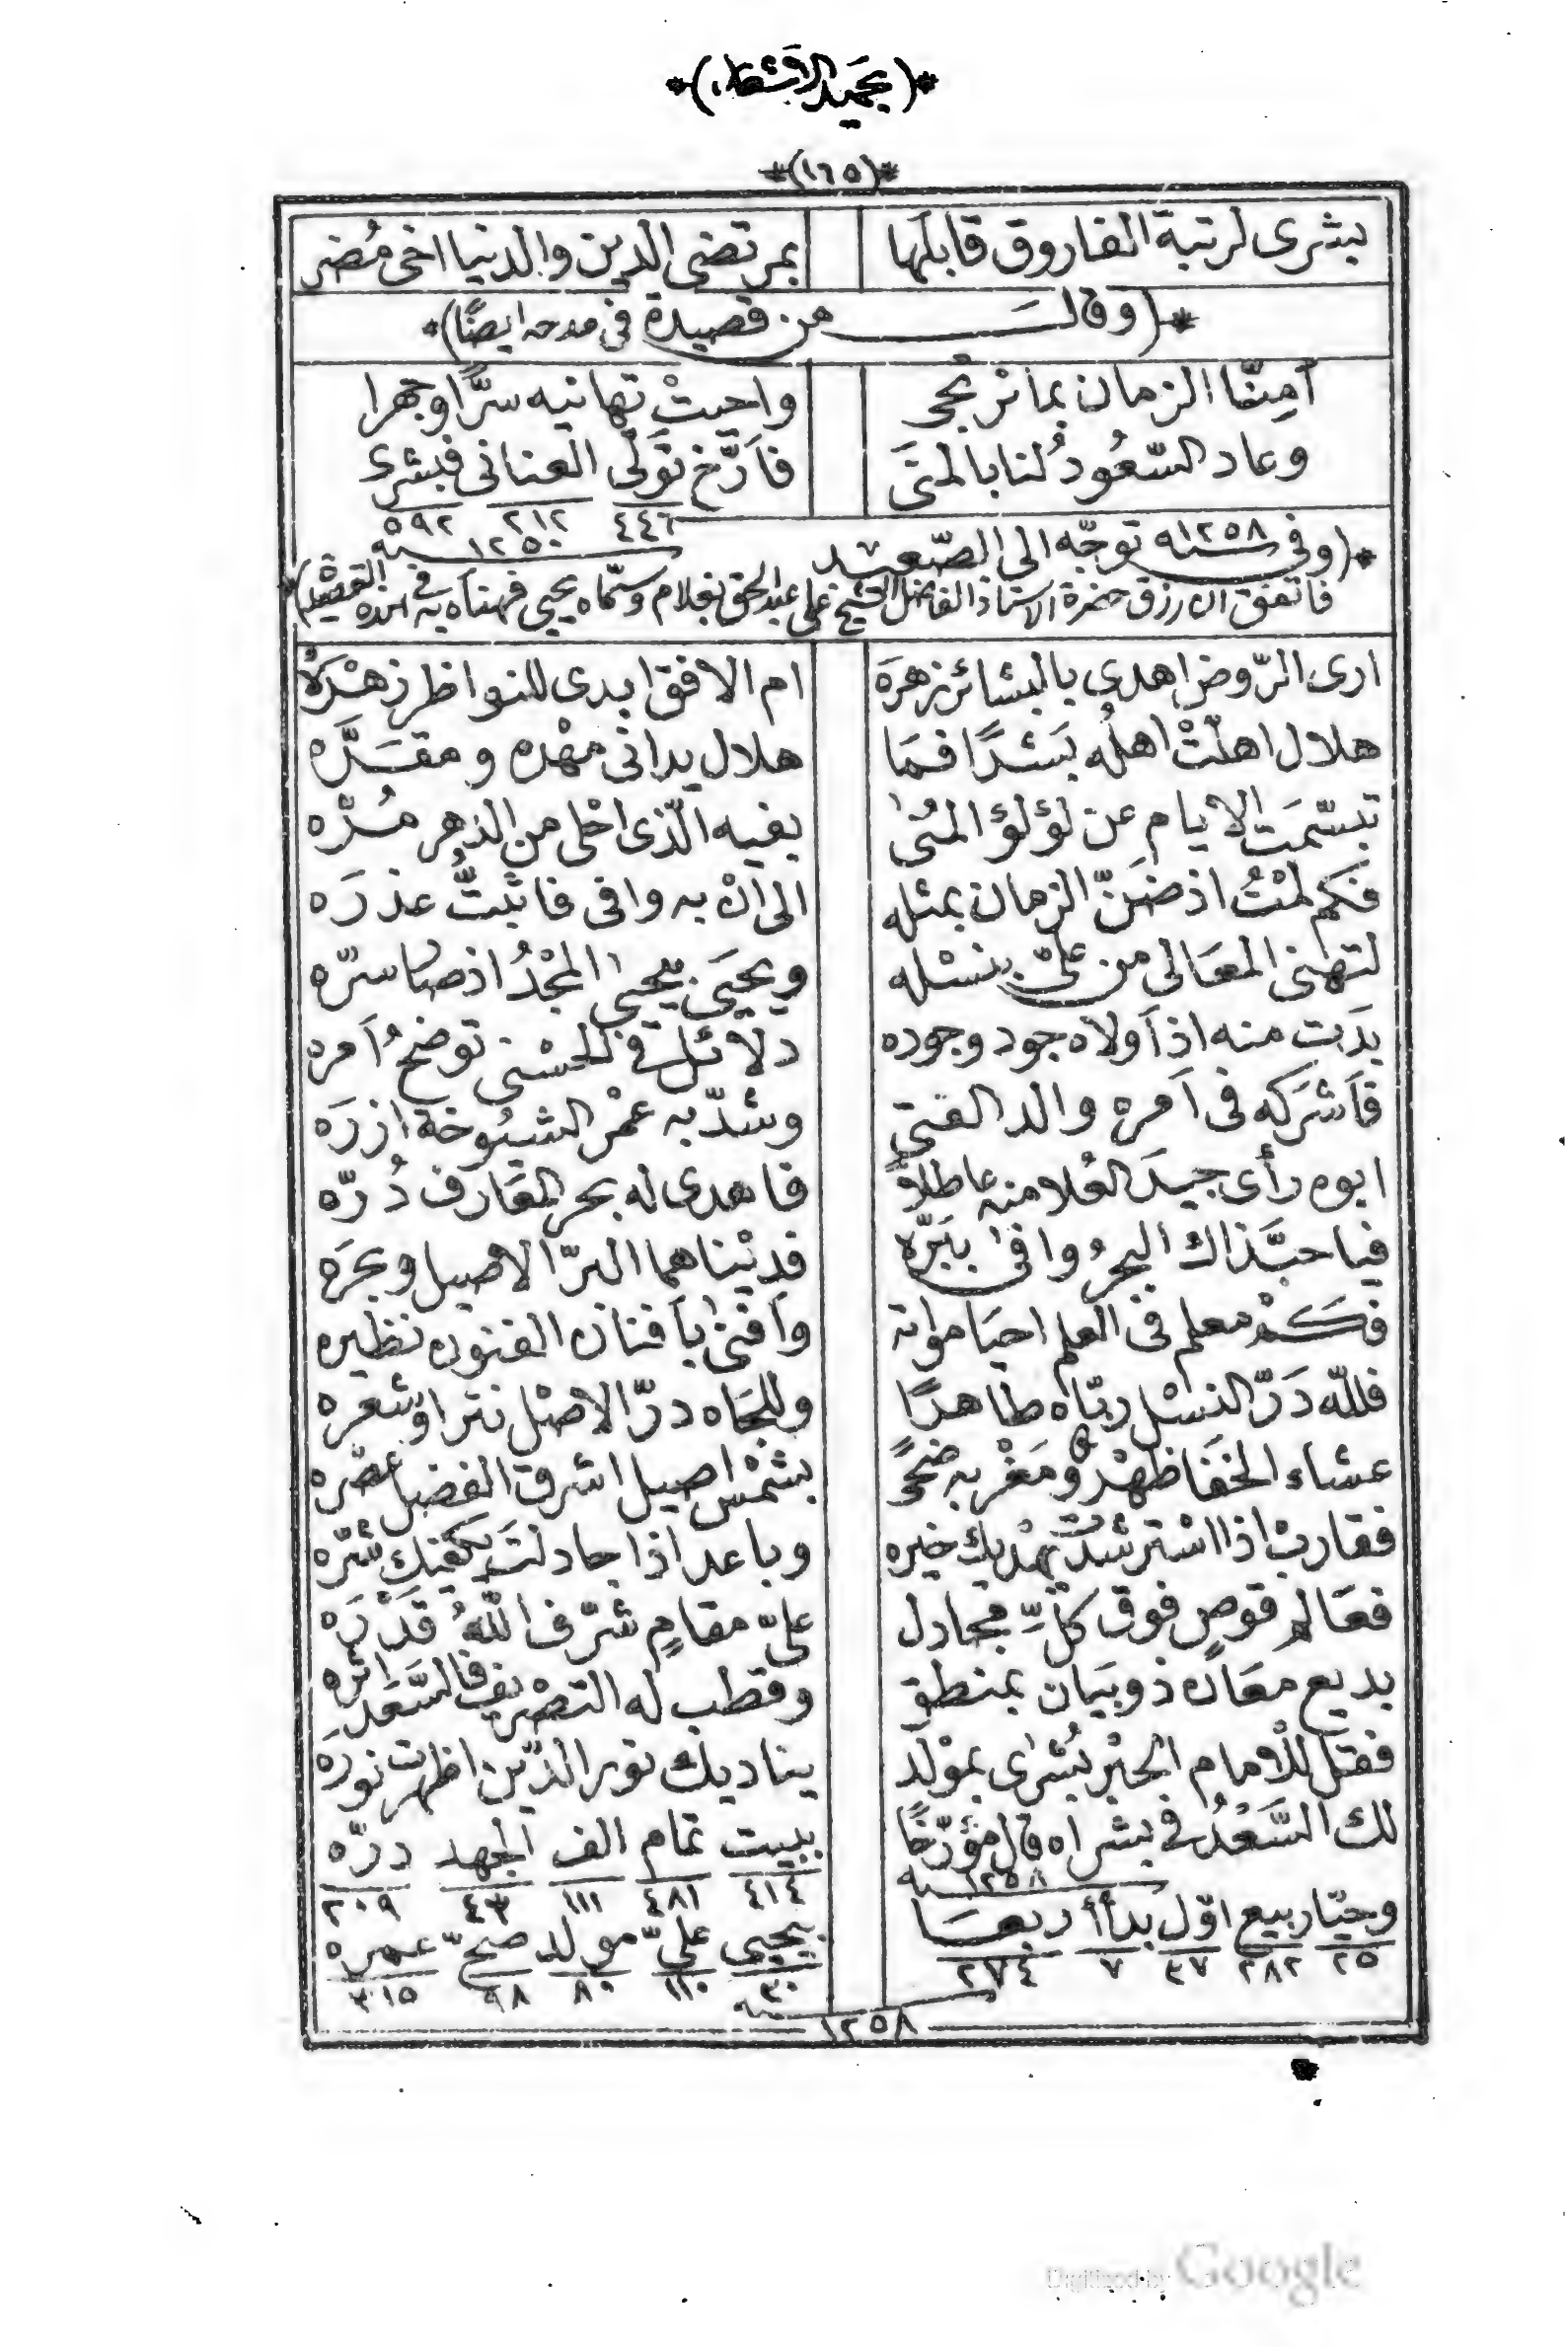 *(١٦٥)*
بشرى لرتبة الفاروق قابلها بمرتضى الدين والدنيا اخى مُضر
*(وقال من قصيدة فى مدحه ايضًا)*
أمِنَّا الزمان بما ثر واحيتْ تهانيه سرًّا وجهرا
وعاد السّعُود لنا بالمنَى فأرّخ تَولّى العنانى فبشرى
٤٤٦ ٢١٢ ٥٩٢
١٢٥٠ سنه
*(وفى سنه ١٢٥٨ توجّه الى الصّعيد
فاتفق ان رزق حضرة الاستاذ الفاضل الشيخ على عبد الحق بغلام وسمّاه يحيى فهناه به فى هذه القصيدة)*
ارى الرّوض اهدى بالبشائر زهرَه ام الافق ابدى للنواظر زهْرَهُ
هلال اهلّتْ اهلُه بَشرًا فمَا هلال يدانى مهْده ومقرَّه
تبسّمَت الايام عن لؤلؤ المنى بفيه الّذى احلى من الدهر مُرّه
فكم لمْتُ اذ ضَنّ الزمان بمثله الى ان به وافى فاثبتُّ عذرَه
لتهنى المعَالى من علىّ بنسْله ويحيَى بيحيى المجْدُ اذ صار سرّه
بدَت منه اذ أولاه جود وجوده دلائل فى الحسْنى توضحُ أمره
فأشرَكه فى أمره والد الفتى وشدّ به عمْر الشيُوخة ازرَه
ابوه رأى جيدَ العُلا منه عاطلاً فاهدى له بحر المعَارف دُرّه
فيا حبَّذاك البحرُ وافى ببَرّه فديْناهما البرّ الاصيل وبحرَه
فكمْ معلم فى العلم احيَا مواته وأفنى بأفنان الفنون نظيره
فللّه دَرّ النسْل ربّاه طاهرًا وللجَاه درّ الاصْل نثرا وشعره
عشاء الخفَا ظهْر ومَغْربه ضحىً بشمْس اصيل اشرق الفضل عصْره
فقاربْ اذا اسْترشدْتَ يهْديك خيره وباعد اذا جادلتَ يكفيك شرّه
فعَالم قوصٍ فوق كلّ مجادل علىّ مقامٍ شرّف اللّهُ قَدْرَه
بديع معَان ذو بيَان بمنطق وقطب له التصْريف فالسَّعْد ائره
فقل للامام الحبْر بُشرى بموْلد يناديك نور الدّين اظهرت نوره
لك السَّعْدُ فى بشراه قال مؤرّخًا ببيت تمام الف الجهد درّه
١٢٥٨ سنه ٤١٤ ٤٨١ ١١١ ٤٣ ٢٠٩
وحيّا ربيع اوّل بدأ أربعَا بيحيى علىّ مولد صحّ عمره
٢٥ ٢٨٢ ٣٧ ٧ ٢٧٤ ٣٠ ١١٠ ٨٠ ٩٨ ٣١٥
١٢٥٨ سنه
Digitized by Google